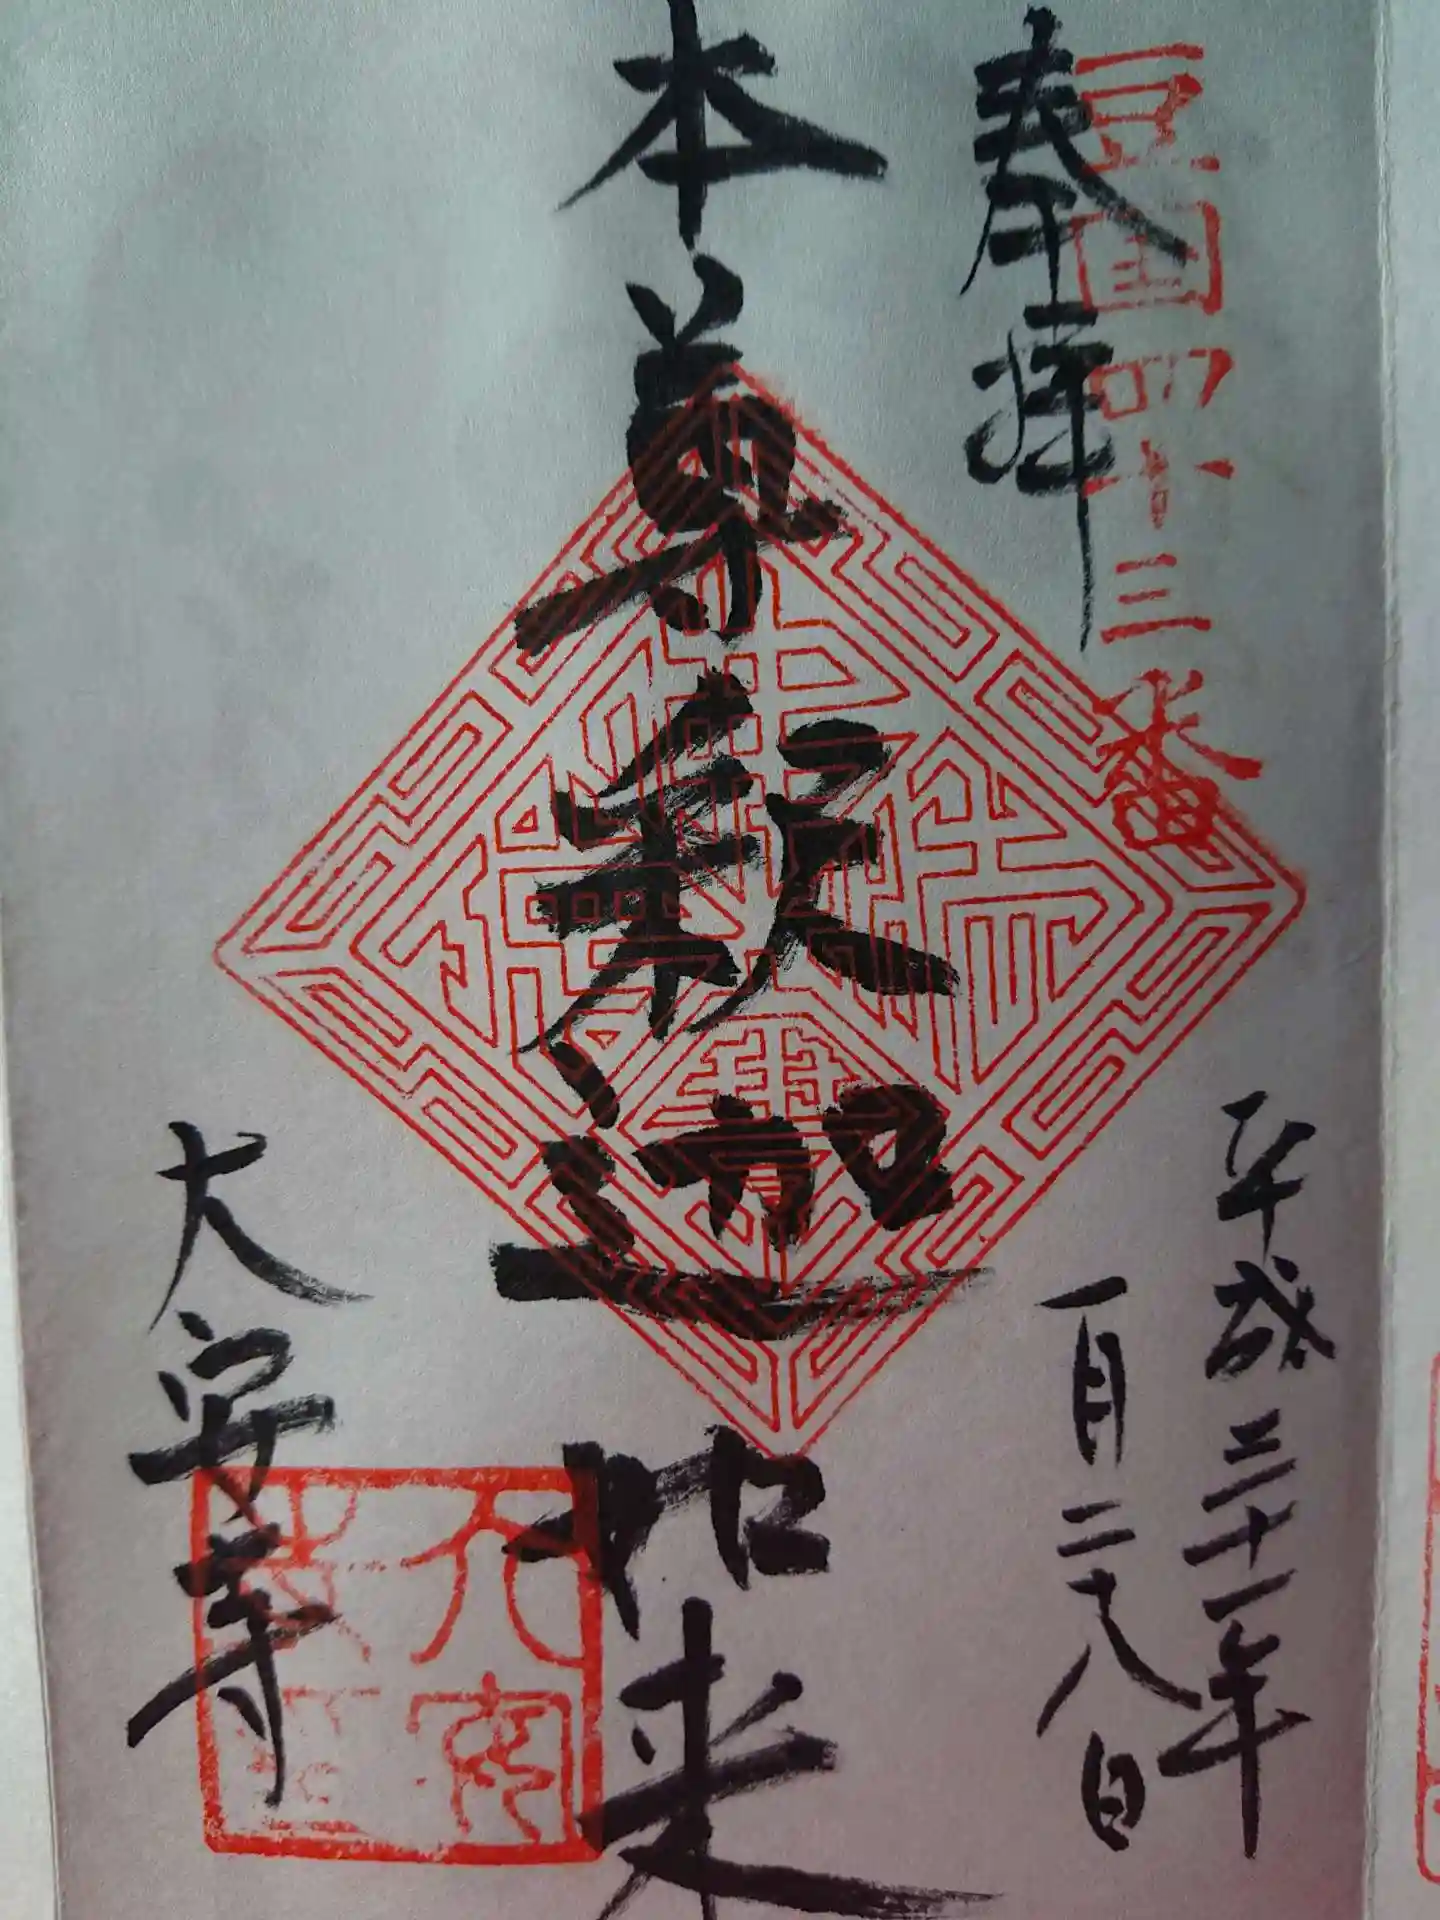 豆国四十三番
奉拝
平成三十一年
一月二十八日
本尊釈迦如来
大安寺